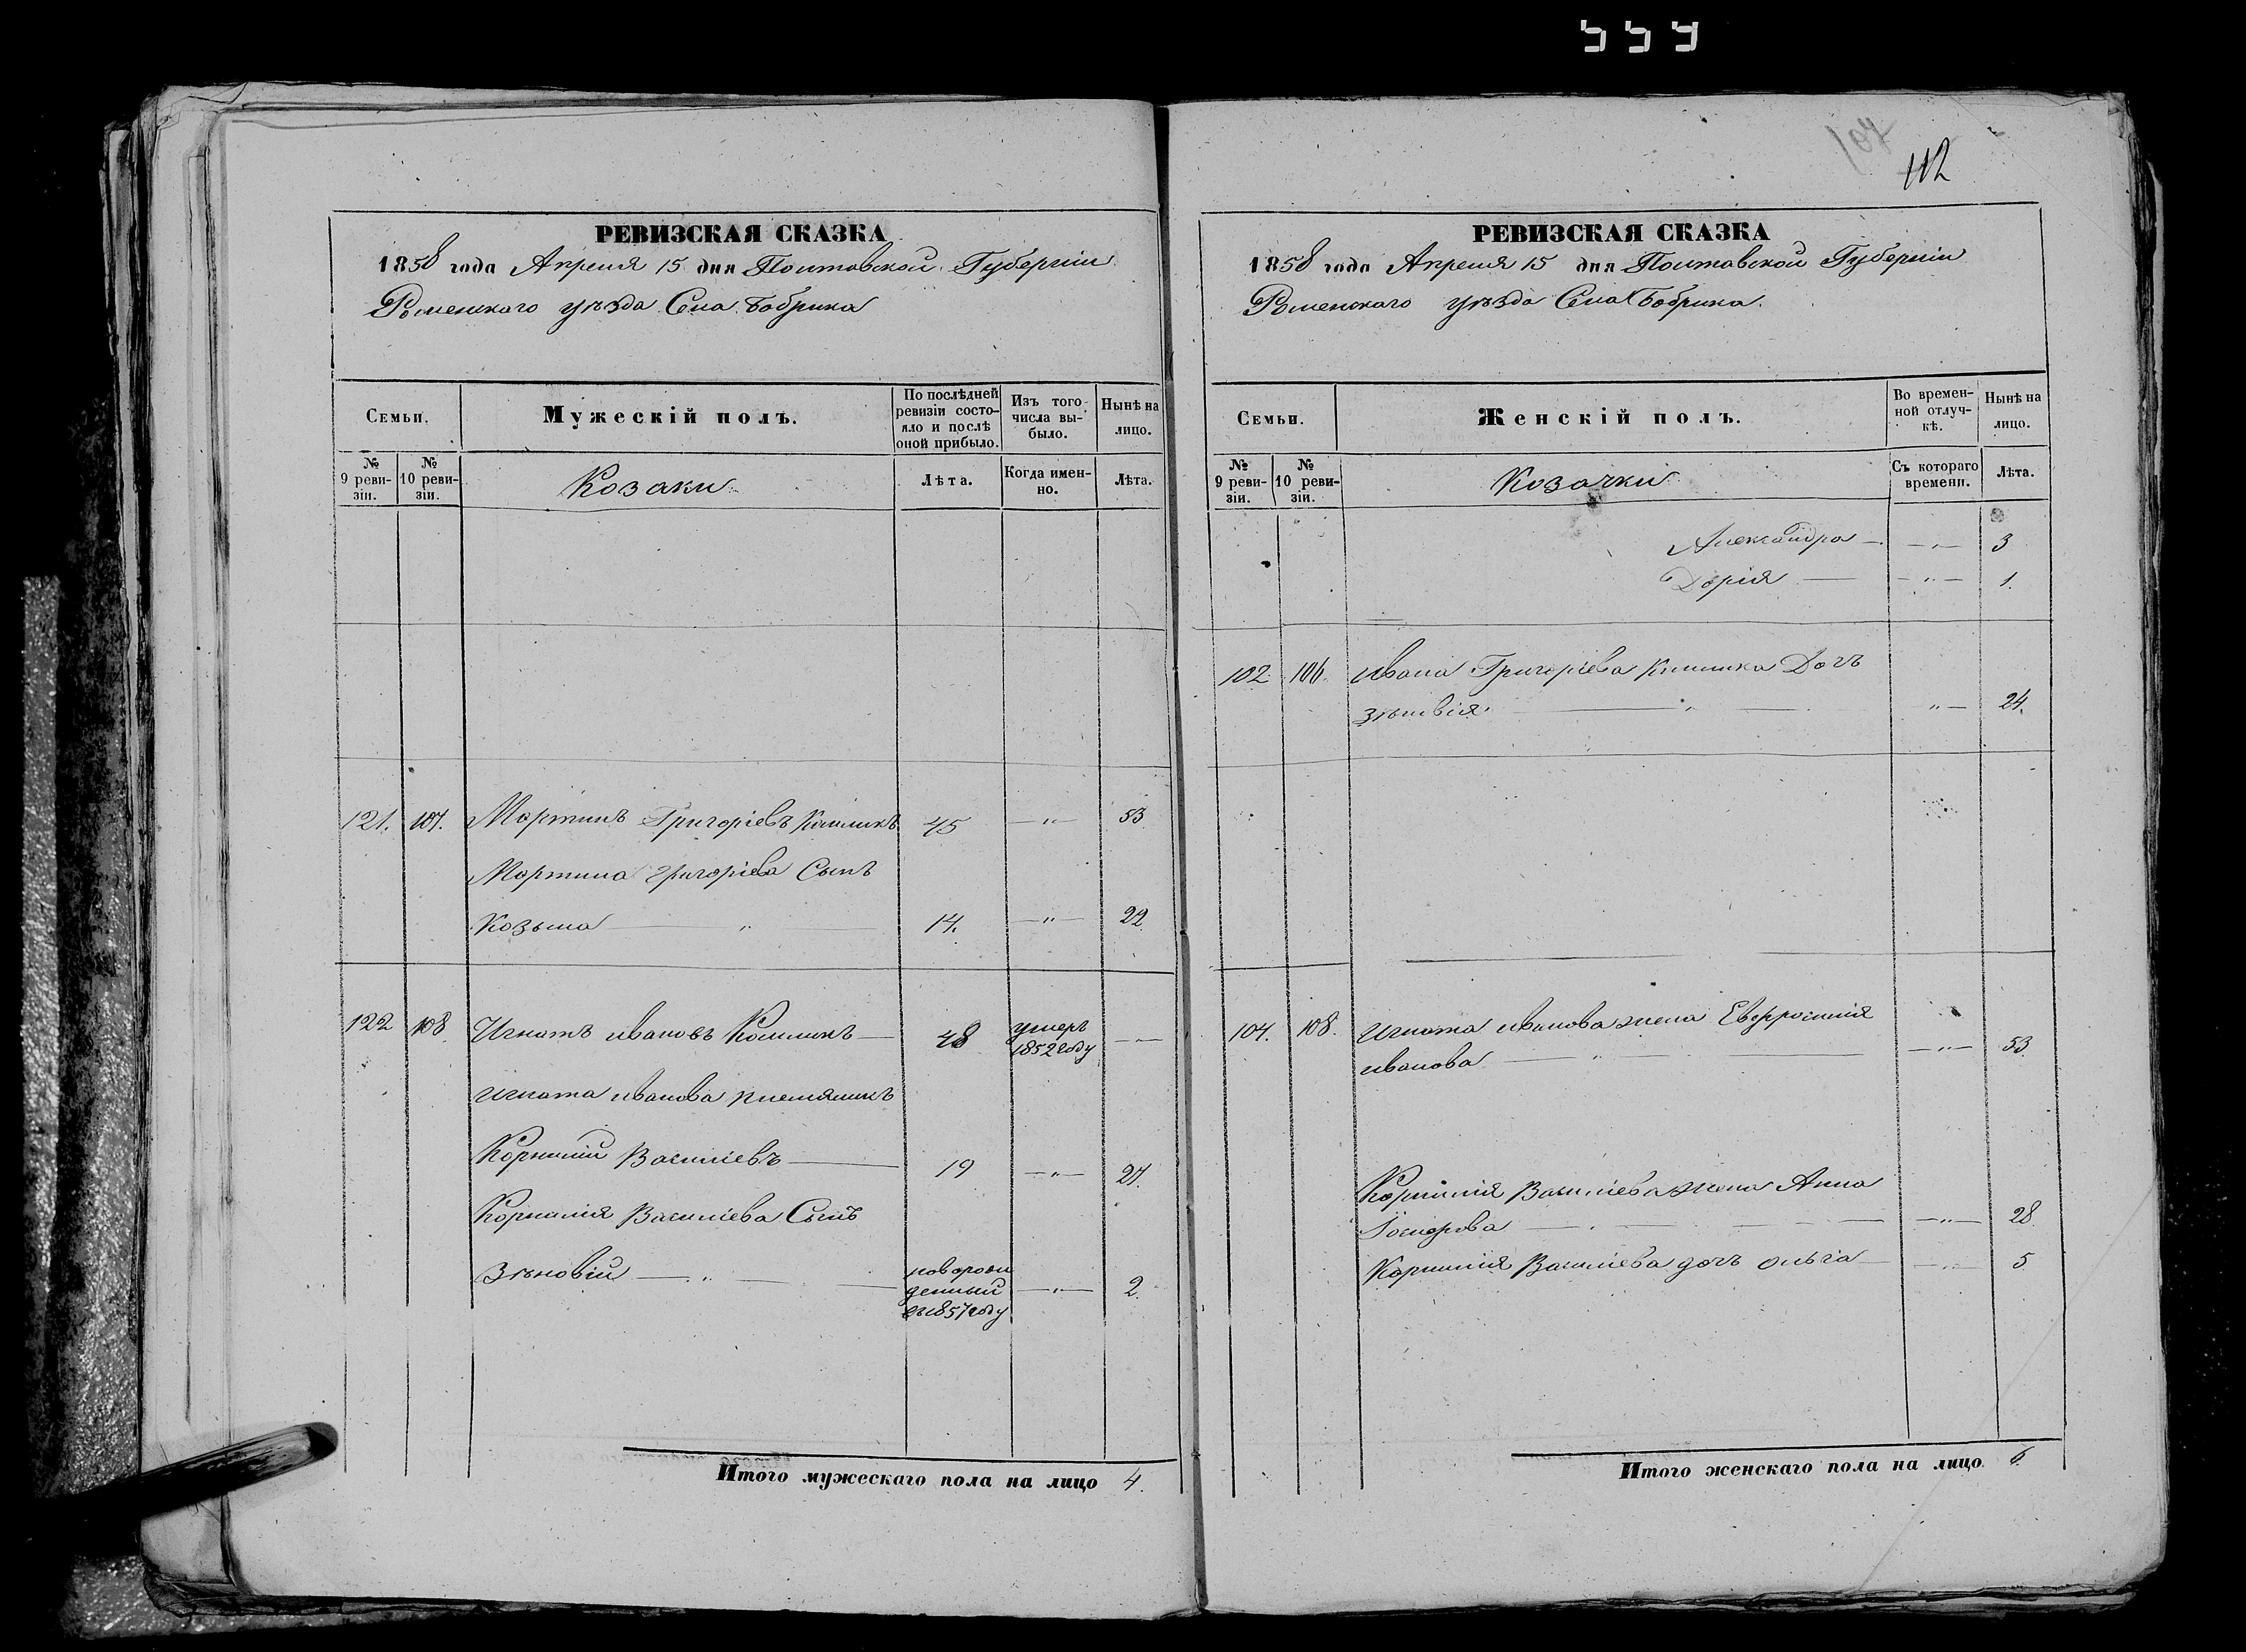 559
107
112
РЕВИЗСКАЯ СКАЗКА
1858 года Апреля 15 дня Полтавской Губерніи
Роменского уѣзда Села Бобрика
Семьи.
Мужескій полъ.
По послѣдней ревизіи состояло и послѣ оной прибыло.
Изъ того числа выбыло.
Нынѣ на лицо.
№ 9 ревизіи.
№ 10 ревизіи.
Козаки
Лѣта.
Когда именно.
Лѣта.
121. 107. Мартинъ Григоріевъ 45 —„— 53
Мартина Григоріева Сынъ
Козьма — „ — 14. —„— 22
122 108 Игнатъ Ивановъ — 48 умеръ 1852 году —„—
Игната Иванова племяникъ
Корнилій Василіевъ — 19 —„— 27.
Корнилія Василіева Сынъ
Зѣновій — „ — новорожденный въ 1857 году —„— 2.
Итого мужескаго пола на лицо 4.
РЕВИЗСКАЯ СКАЗКА
1858 года Апреля 15 дня Полтавской Губерніи
Роменского уѣзда Села Бобрика.
Семьи.
Женскій полъ.
Во временной отлучкѣ.
Нынѣ на лицо.
№ 9 ревизіи.
№ 10 ревизіи.
Козачки
Съ котораго времени.
Лѣта.
Александра — —„— 3
Дарія — —„— 1.
102. 106. Ивана Григоріева Дочъ
— „ — „— 24.
104. 108. Игната Иванова жена Евфросинія
Иванова — „ — —„— 53.
Корнилія Василіева жена Анна
— —„— 28
Корнилія Василіева дочъ Ольга — —„— 5
Итого женскаго пола на лицо 6.